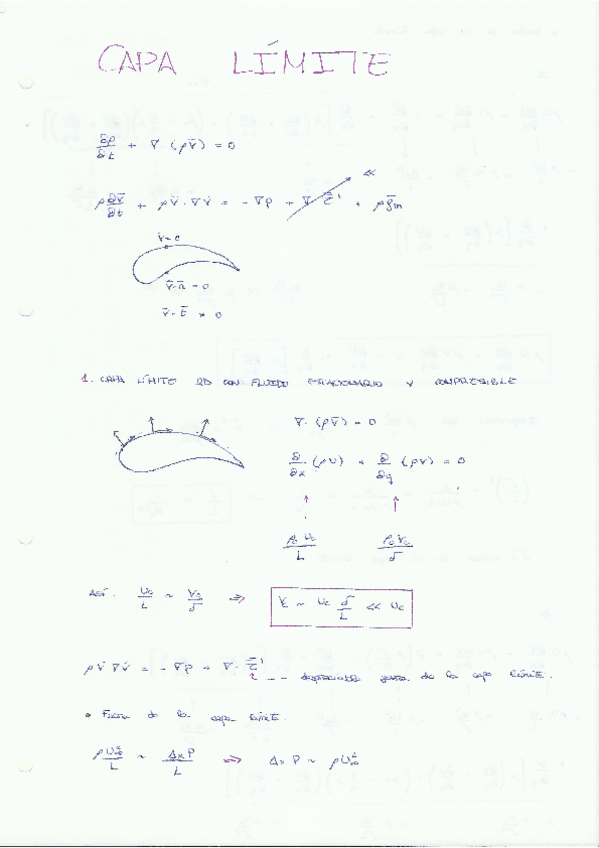 CAPA LÍMITE
∂ρ/∂t + ∇ · (ρv̄) = 0
ρ ∂v̄/∂t + ρv̄ · ∇v̄ = -∇p + ∇ · τ̄' + ρḡm
<<
v̄ = 0
v̄ · n̄ = 0
v̄ · t̄ ≠ 0
1. CAPA LÍMITE 2D CON FLUIDO ESTACIONARIO Y COMPRESIBLE
∇ · (ρv̄) = 0
∂/∂x (ρu) + ∂/∂y (ρv) = 0
ρc uc/L ρc vc/δ
ASÍ: uc/L ~ vc/δ ⇒ vc ~ uc δ/L << uc
ρv̄ · ∇v̄ = -∇p + ∇ · τ̄' -- despreciable fuera de la capa límite.
• Fuera de la capa límite:
ρU∞²/L ~ ΔxP/L ⇒ ΔxP ~ ρU∞²